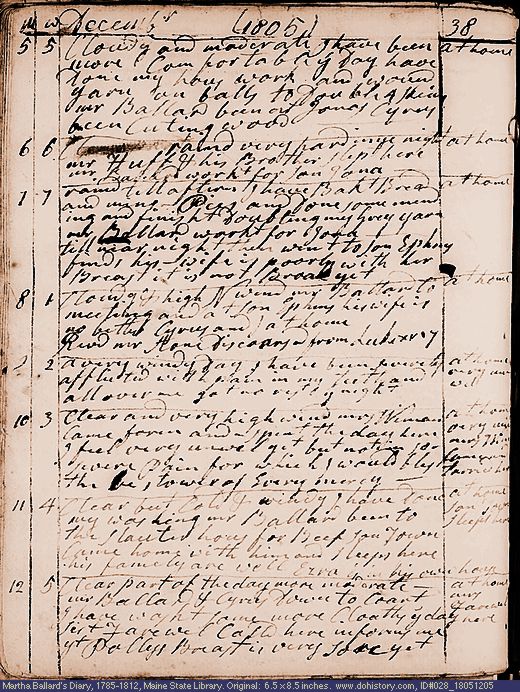 M W Decemb r (1805) 38
5 5 Cloudy and moderate I have been at home
more Comfortably y Day have
Done my hous work and wound
yarn on balls to Doubl 9 skins
mr Ballard been at Jonas Cyrus
been Cuting wood
6 6 raind very hard in ye night at home
mr Huff & his Brother sleep here
mr Ballard workt for son Jona
7 7 raind till aftern I have Bakt Bread at home
and mins Pies and Done some mend
ing and finisht Doubling my grey yarn
mr Ballard workt for Jona
till near night then went to son Ephms
finds his wife is poorly with her
Breast it is not Broak yet
8 1 Cloudy & high N wind mr Ballard to at home
meeting and at son Ephms his wife is
no better Cyrus and I at home
Revd mr Stone Discoarsd from Luke
2 a very windy Day I have been at home
afflicted with pain in my feet and very un
all over me got no rest y night well
10 3 Clear and very high wind mrs at home
Came for in and spent the day here very un
I feel very unwell yet but not in so
severe Pain for which I would bless
the bestower of Every mercy
11 4 Clear but Cold & windy I have Done at home
my washing mr Ballard been to son
the slauter hous for Beef son Town sleeps here
Came home with him and sleeps here
his family are well Ezra his own horse
12 5 Clear part of the day more moderate at home
mr Ballard & Cyrus Down to Coart
I have washt some more Cloaths y day
Farewell Calld here informs me here
yt Pollys Breast is very sore yet
Martha Ballard's Diary, 1785-1812, Maine State Library. Original: 6.5 x 8.5 inches. www.dohistory.com, ID#028_18051205